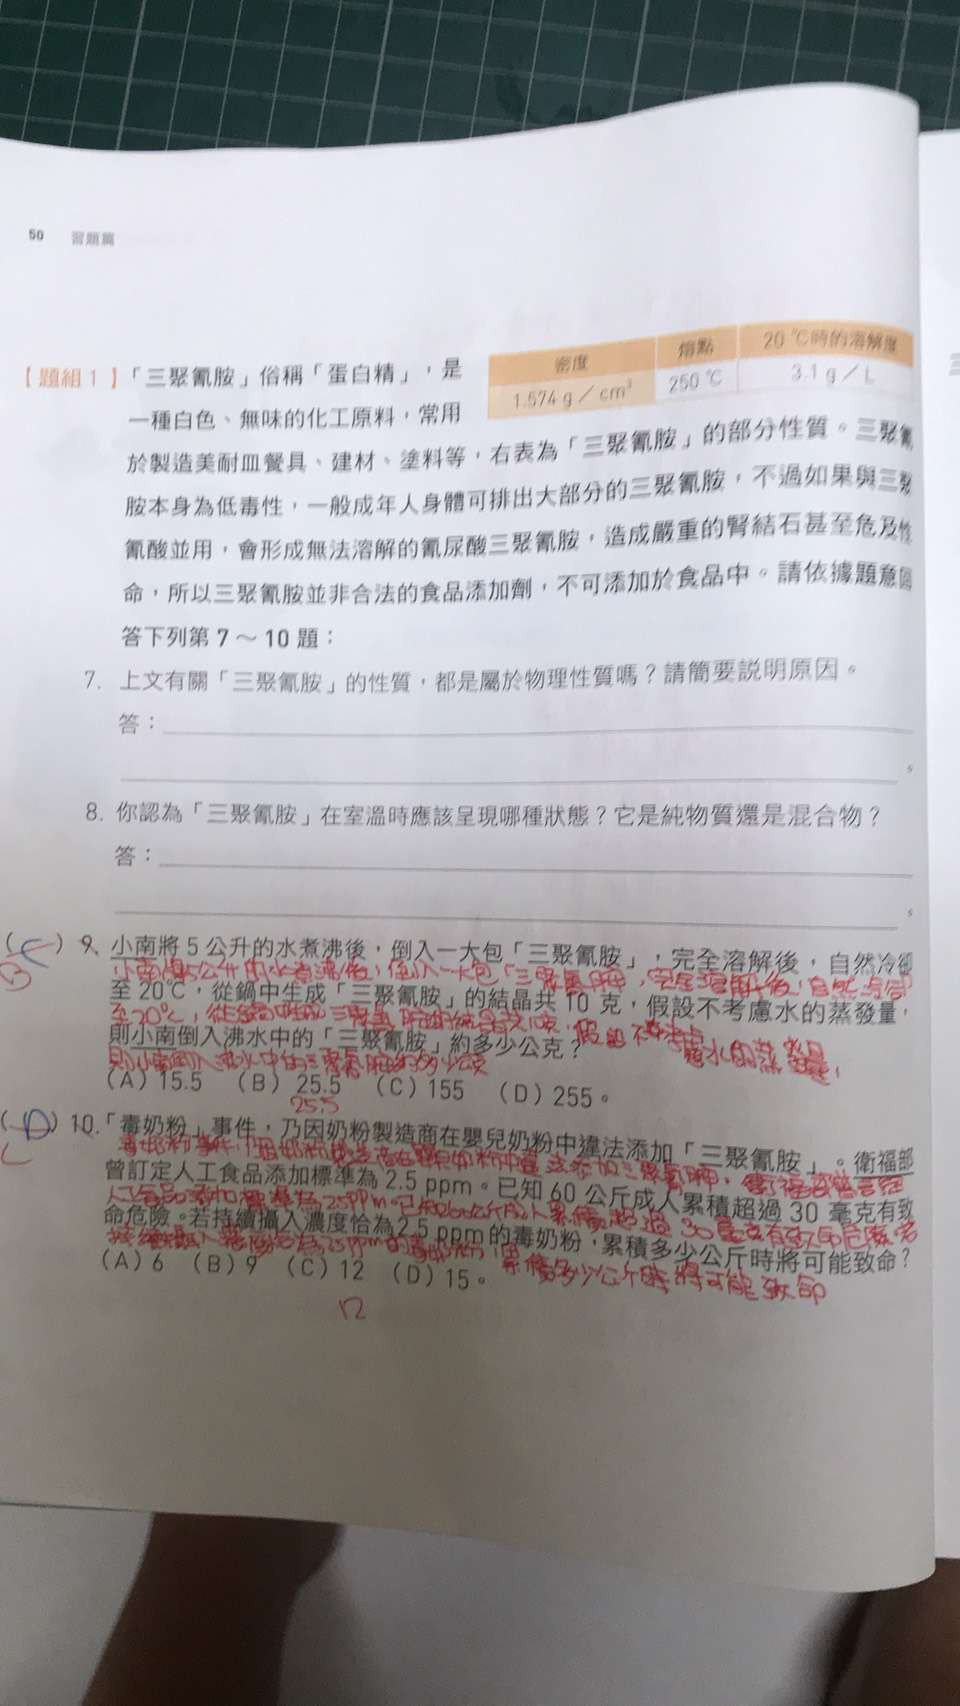 50 習題篇
密度 熔點 20 ℃時的溶解度
1.574 g / cm³ 250 ℃ 3.1 g / L
【題組1】「三聚氰胺」俗稱「蛋白精」，是
一種白色、無味的化工原料，常用
於製造美耐皿餐具、建材、塗料等，右表為「三聚氰胺」的部分性質。三聚氰
胺本身為低毒性，一般成年人身體可排出大部分的三聚氰胺，不過如果與三聚
氰酸並用，會形成無法溶解的氰尿酸三聚氰胺，造成嚴重的腎結石甚至危及性
命，所以三聚氰胺並非合法的食品添加劑，不可添加於食品中。請依據題意回
答下列第 7 ～ 10 題：
7. 上文有關「三聚氰胺」的性質，都是屬於物理性質嗎？請簡要說明原因。
答：
。
8. 你認為「三聚氰胺」在室溫時應該呈現哪種狀態？它是純物質還是混合物？
答：
。
(C) 9. 小南將 5 公升的水煮沸後，倒入一大包「三聚氰胺」，完全溶解後，自然冷卻
B 小南將5公升的水煮沸後，倒入一大包「三聚氰胺」，完全溶解後，自然冷卻
至 20℃，從鍋中生成「三聚氰胺」的結晶共 10 克，假設不考慮水的蒸發量，
至20℃，從鍋中生成三聚氰胺的結晶共10克，假設不考慮水的蒸發量，
則小南倒入沸水中的「三聚氰胺」約多少公克？
則小南倒入沸水中的三聚氰胺約多少公克
(A) 15.5 (B) 25.5 (C) 155 (D) 255。
25.5
(D) 10.「毒奶粉」事件，乃因奶粉製造商在嬰兒奶粉中違法添加「三聚氰胺」。衛福部
C 毒奶粉事件，乃因奶粉製造商在嬰兒奶粉中違法添加三聚氰胺，衛福部曾訂定
曾訂定人工食品添加標準為 2.5 ppm。已知 60 公斤成人累積超過 30 毫克有致
人工食品添加標準為2.5PPm。已知60公斤成人累積超過30毫克有致命危險。若
命危險。若持續攝入濃度恰為 2.5 ppm 的毒奶粉，累積多少公斤時將可能致命？
持續攝入濃度恰為2.5PPm的毒奶粉，累積多少公斤時將可能致命
(A) 6 (B) 9 (C) 12 (D) 15。
12